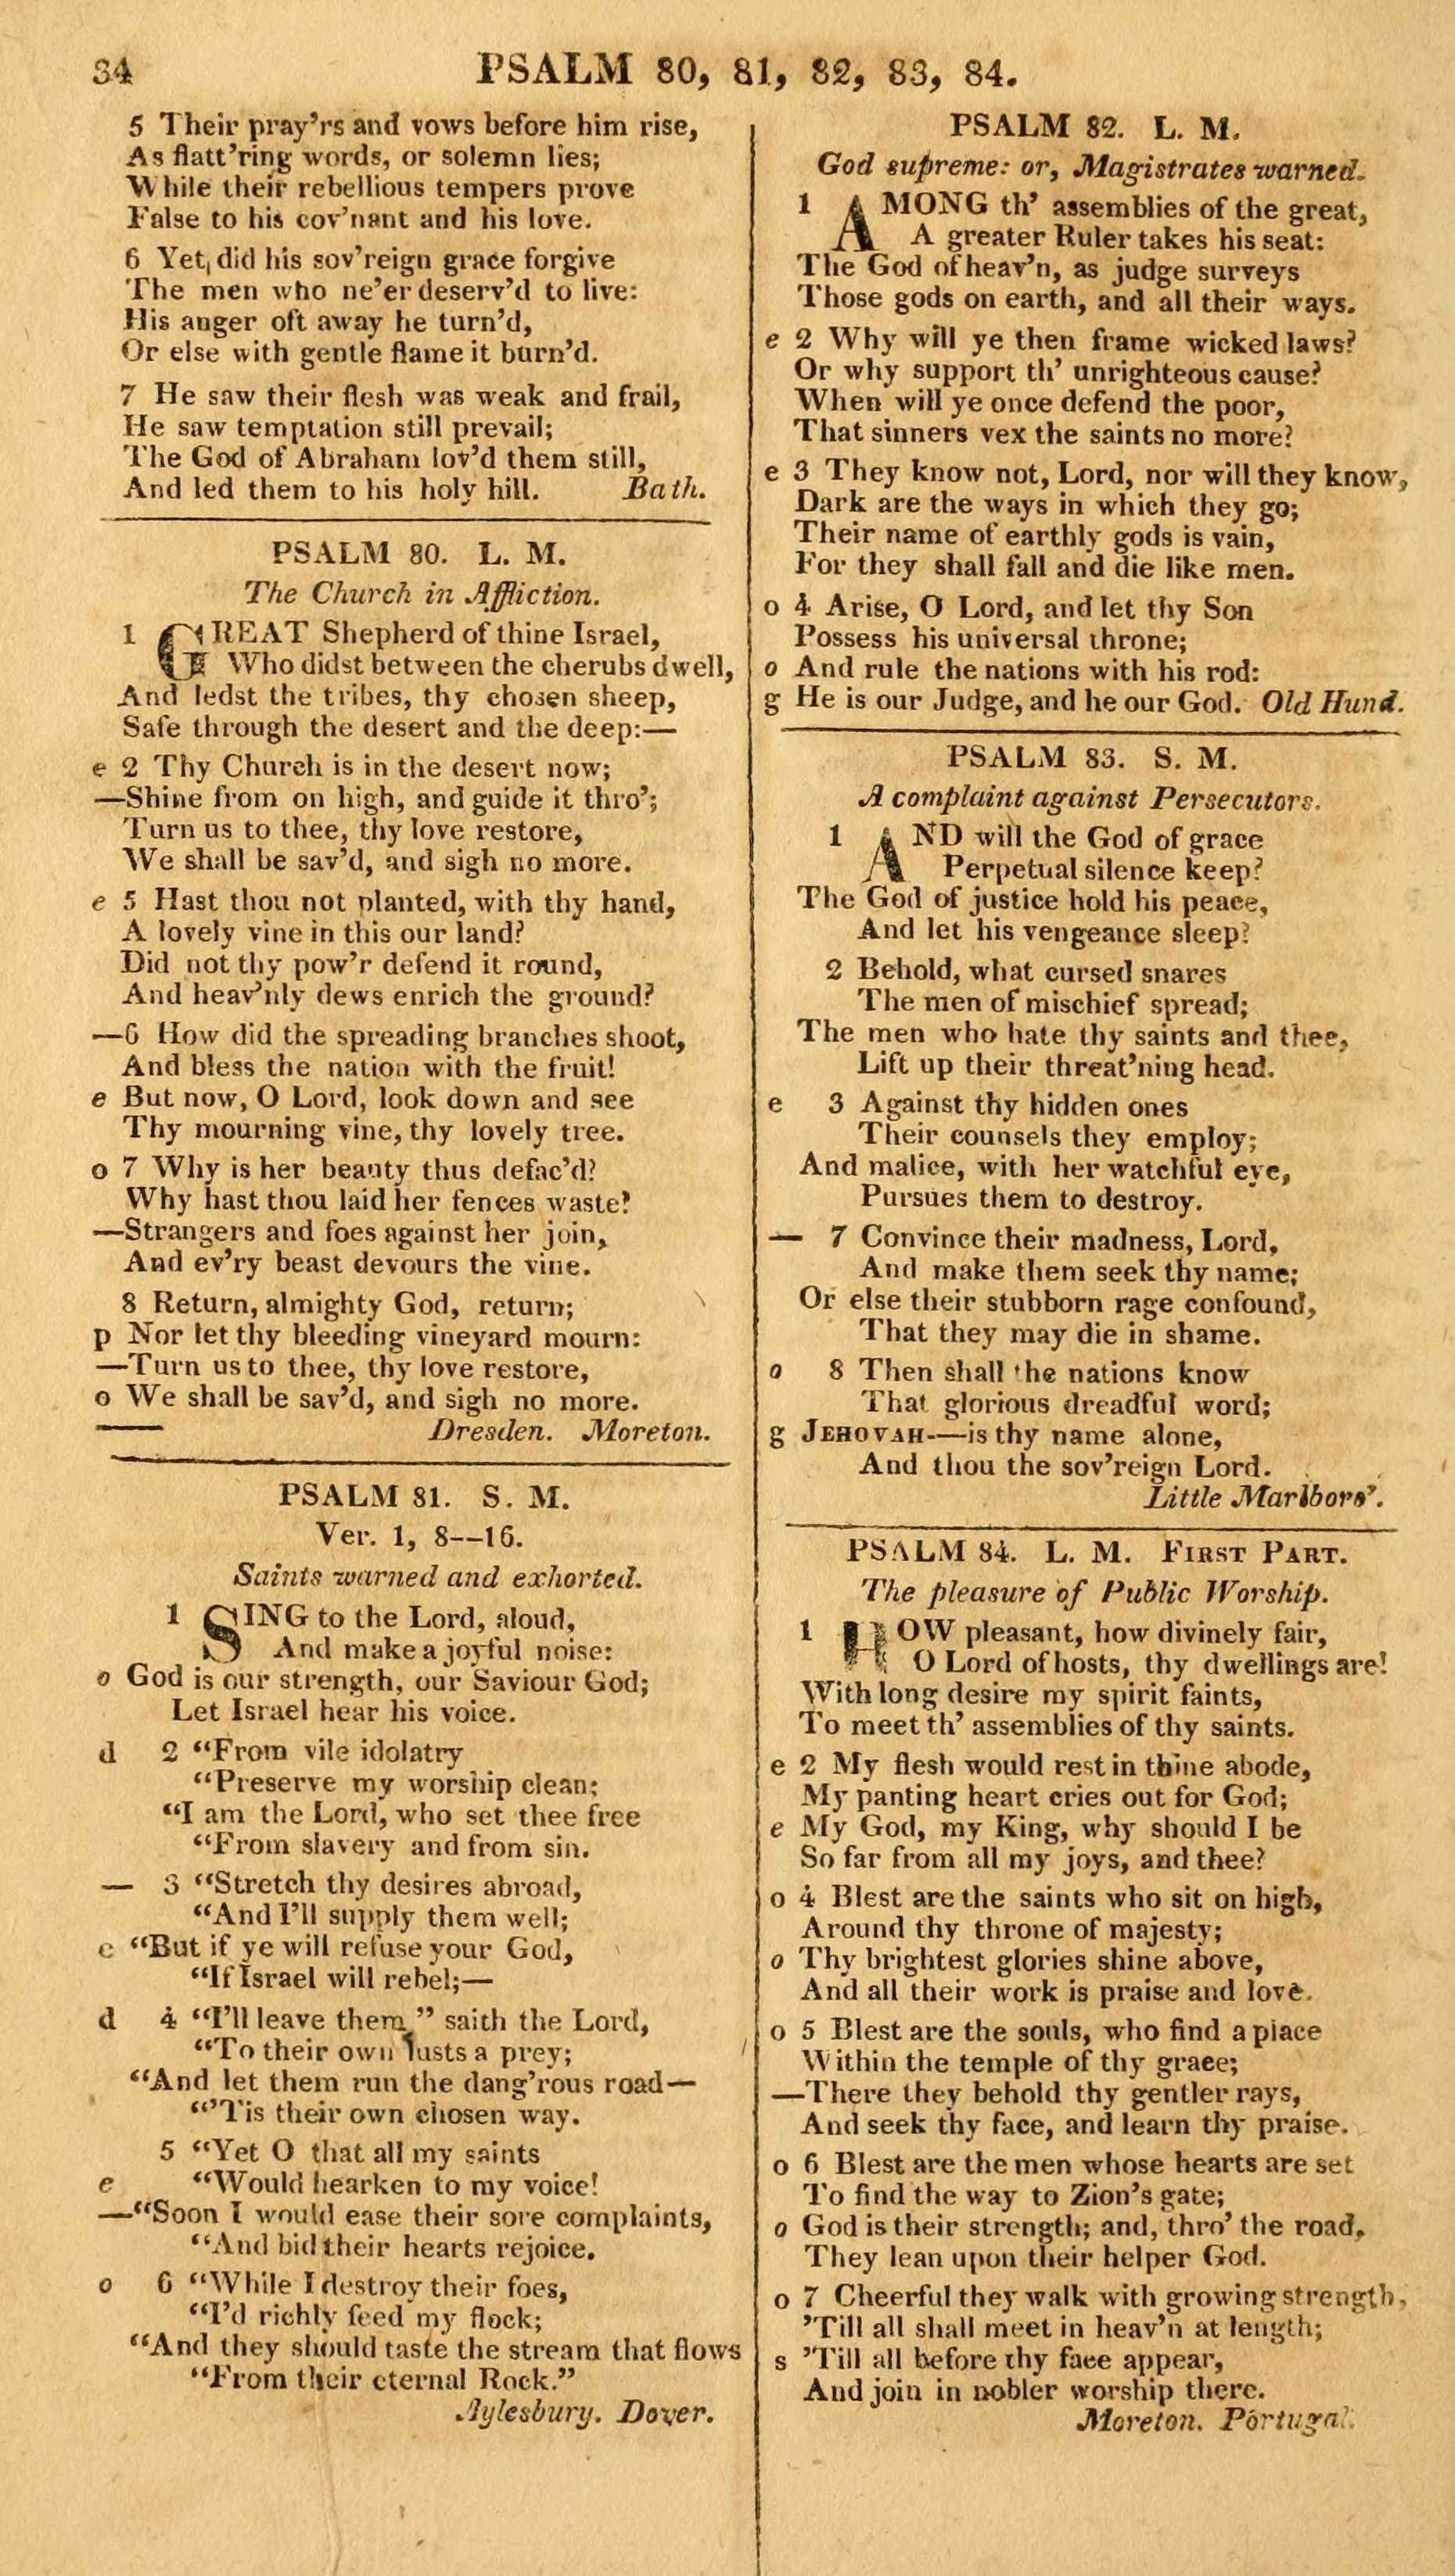 34
PSALM 80, 81, 82, 83, 84.
5 Their pray'rs and vows before him rise,
As flatt'ring words, or solemn lies;
While their rebellious tempers prove
False to his cov'nant and his love.
6 Yet, did his sov'reign grace forgive
The men who ne'er deserv'd to live:
His anger oft away he turn'd,
Or else with gentle flame it burn'd.
7 He saw their flesh was weak and frail,
He saw temptation still prevail;
The God of Abraham lov'd them still,
And led them to his holy hill. Bath.
PSALM 80. L. M.
The Church in Affliction.
1 GREAT Shepherd of thine Israel,
Who didst between the cherubs dwell,
And ledst the tribes, thy chosen sheep,
Safe through the desert and the deep:—
e 2 Thy Church is in the desert now;
—Shine from on high, and guide it thro';
Turn us to thee, thy love restore,
We shall be sav'd, and sigh no more.
e 5 Hast thou not planted, with thy hand,
A lovely vine in this our land?
Did not thy pow'r defend it round,
And heav'nly dews enrich the ground?
—6 How did the spreading branches shoot,
And bless the nation with the fruit!
e But now, O Lord, look down and see
Thy mourning vine, thy lovely tree.
o 7 Why is her beauty thus defac'd?
Why hast thou laid her fences waste?
—Strangers and foes against her join,
And ev'ry beast devours the vine.
8 Return, almighty God, return;
p Nor let thy bleeding vineyard mourn:
—Turn us to thee, thy love restore,
o We shall be sav'd, and sigh no more.
Dresden. Moreton.
PSALM 81. S. M.
Ver. 1, 8--16.
Saints warned and exhorted.
1 SING to the Lord, aloud,
And make a joyful noise:
o God is our strength, our Saviour God;
Let Israel hear his voice.
d 2 "From vile idolatry
"Preserve my worship clean;
"I am the Lord, who set thee free
"From slavery and from sin.
— 3 "Stretch thy desires abroad,
"And I'll supply them well;
e "But if ye will refuse your God,
"If Israel will rebel;—
d 4 "I'll leave them," saith the Lord,
"To their own lusts a prey;
"And let them run the dang'rous road—
"'Tis their own chosen way.
5 "Yet O that all my saints
e "Would hearken to my voice!
—"Soon I would ease their sore complaints,
"And bid their hearts rejoice.
o 6 "While I destroy their foes,
"I'd richly feed my flock;
"And they should taste the stream that flows
"From their eternal Rock."
Aylesbury. Dover.
PSALM 82. L. M.
God supreme: or, Magistrates warned.
1 AMONG th' assemblies of the great,
A greater Ruler takes his seat:
The God of heav'n, as judge surveys
Those gods on earth, and all their ways.
e 2 Why will ye then frame wicked laws?
Or why support th' unrighteous cause?
When will ye once defend the poor,
That sinners vex the saints no more?
e 3 They know not, Lord, nor will they know,
Dark are the ways in which they go;
Their name of earthly gods is vain,
For they shall fall and die like men.
o 4 Arise, O Lord, and let thy Son
Possess his universal throne;
o And rule the nations with his rod:
g He is our Judge, and he our God. Old Hund.
PSALM 83. S. M.
A complaint against Persecutors.
1 AND will the God of grace
Perpetual silence keep?
The God of justice hold his peace,
And let his vengeance sleep?
2 Behold, what cursed snares
The men of mischief spread;
The men who hate thy saints and thee,
Lift up their threat'ning head.
e 3 Against thy hidden ones
Their counsels they employ;
And malice, with her watchful eye,
Pursues them to destroy.
— 7 Convince their madness, Lord,
And make them seek thy name;
Or else their stubborn rage confound,
That they may die in shame.
o 8 Then shall the nations know
That glorious dreadful word;
g JEHOVAH-—is thy name alone,
And thou the sov'reign Lord.
Little Marlboro'.
PSALM 84. L. M. FIRST PART.
The pleasure of Public Worship.
1 HOW pleasant, how divinely fair,
O Lord of hosts, thy dwellings are!
With long desire my spirit faints,
To meet th' assemblies of thy saints.
e 2 My flesh would rest in thine abode,
My panting heart cries out for God;
e My God, my King, why should I be
So far from all my joys, and thee?
o 4 Blest are the saints who sit on high,
Around thy throne of majesty;
o Thy brightest glories shine above,
And all their work is praise and love.
o 5 Blest are the souls, who find a place
Within the temple of thy grace;
—There they behold thy gentler rays,
And seek thy face, and learn thy praise.
o 6 Blest are the men whose hearts are set
To find the way to Zion's gate;
o God is their strength; and, thro' the road,
They lean upon their helper God.
o 7 Cheerful they walk with growing strength,
'Till all shall meet in heav'n at length;
s 'Till all before thy face appear,
And join in nobler worship there.
Moreton. Portugal.